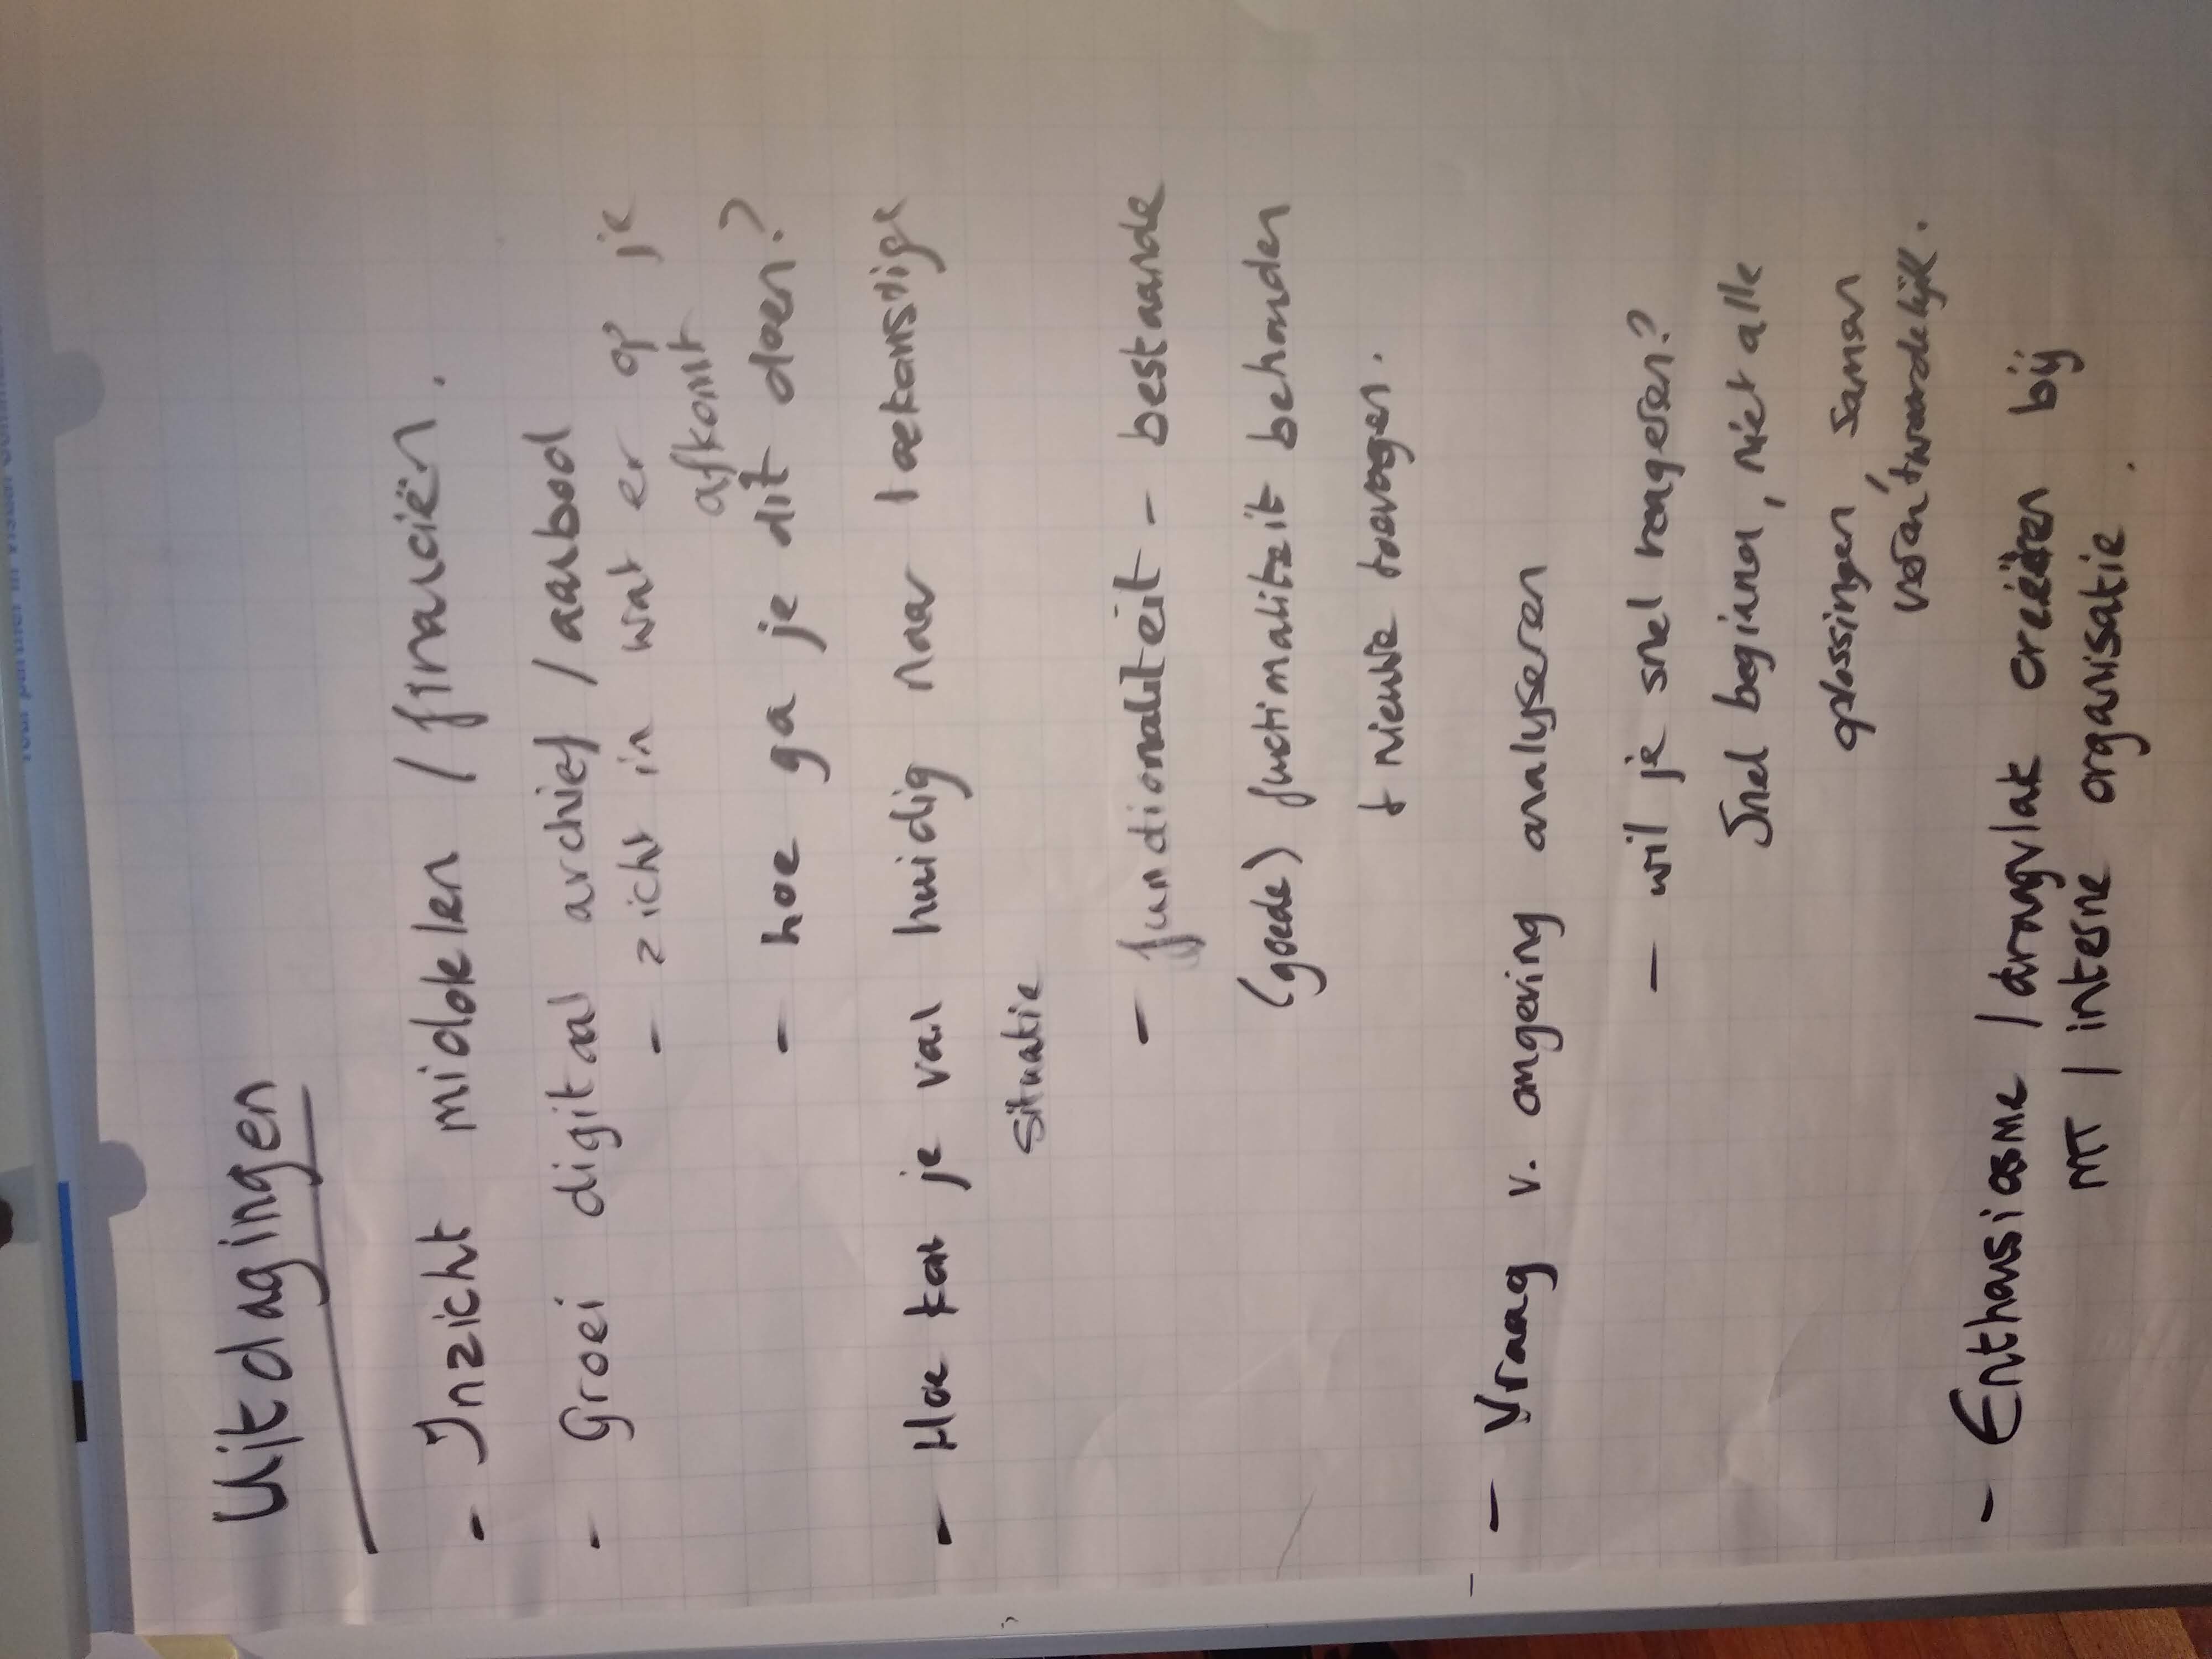 Uitdagingen
- Inzicht middelen / financiën.
- Groei digitaal archief / aanbod
- zicht in wat er op je
afkomt
- hoe ga je dit doen?
- Hoe kan je val huidig naar toekomstige
situatie
- functionaliteit - bestaande
(goede) functionaliteit behouden
+ nieuwe toevoegen.
- Vraag v. omgeving analyseren
- wil je snel reageren?
Snel beginnen, niet alle
oplossingen, samen
verantwoordelijk.
- Enthousiasme / draagvlak creëren bij
MT / interne organisatie.